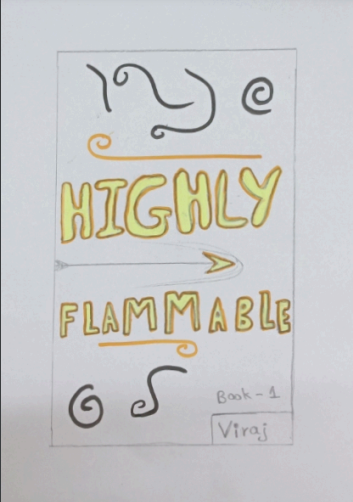 HIGHLY
FLAMMABLE
Book - 1
Viraj